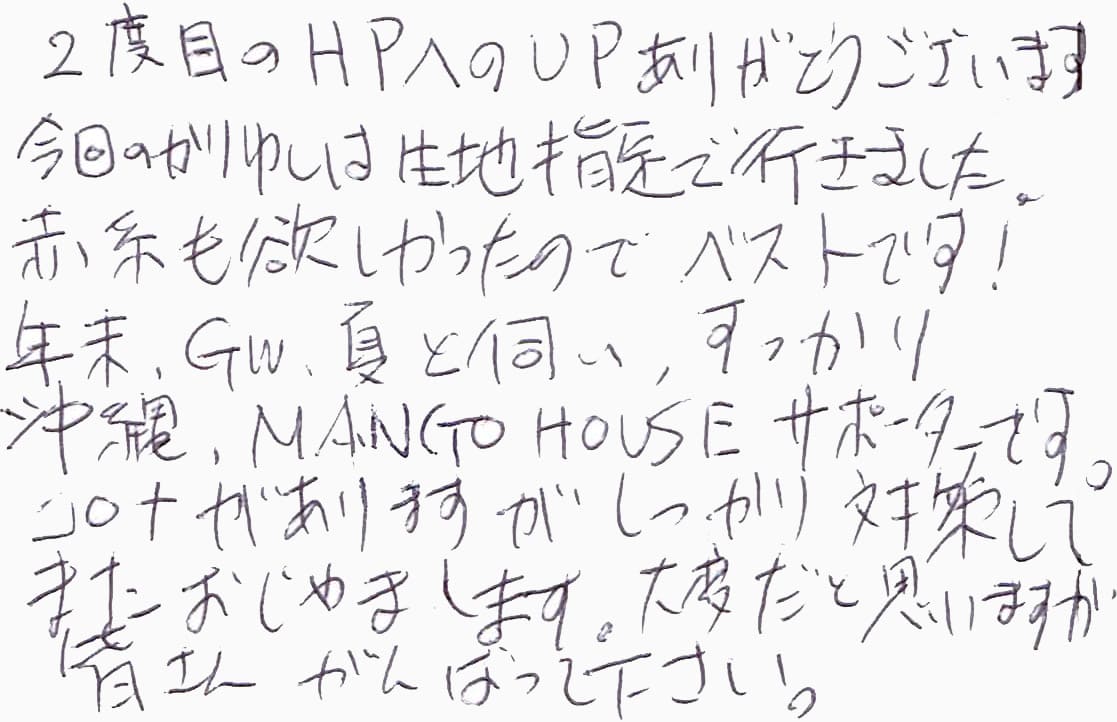 2度目のHPへのUPありがとうございます
今回のかりゆしは生地指定で行きました。
赤糸も欲しかったのでベストです!
年末、GW、夏と伺い、すっかり
沖縄、MANGO HOUSEサポーターです。
コロナがありますがしっかり対策して
またおじゃまします。大変だと思いますが
皆さんがんばって下さい。